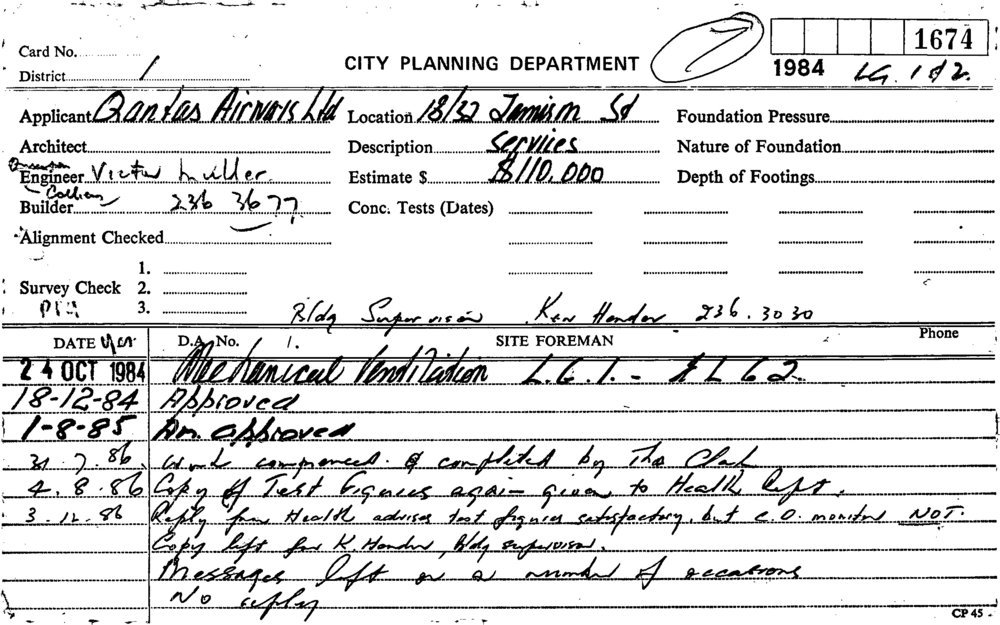 Card No.
District 1
CITY PLANNING DEPARTMENT
7
1674
1984 LG. 1 & 2.
Applicant Qantas Airways Ltd Location 18/32 Jamison St Foundation Pressure
Architect Description Services Nature of Foundation
Engineer Victor Miller. Estimate $ $110,000 Depth of Footings
Builder 236 3677 Conc. Tests (Dates)
Alignment Checked
1.
Survey Check 2.
3.
Bldg Supervisor Ken Hondor 236.3030
DATE D.A. No. 1. SITE FOREMAN Phone
24 OCT 1984 Mechanical Ventilation L.G.1. - & L G 2.
18-12-84 Approved
1-8-85 Am. approved
31.7.86 Work commenced & completed by Thos Clark
4.8.86 Copy of Test Figures again given to Health Dept.
3.12.86 Reply from Health advises test figures satisfactory, but C.O. monitor NOT.
Copy left for K. Hondor, Bldg supervisor.
Messages left on a number of occasions
No reply
CP 45